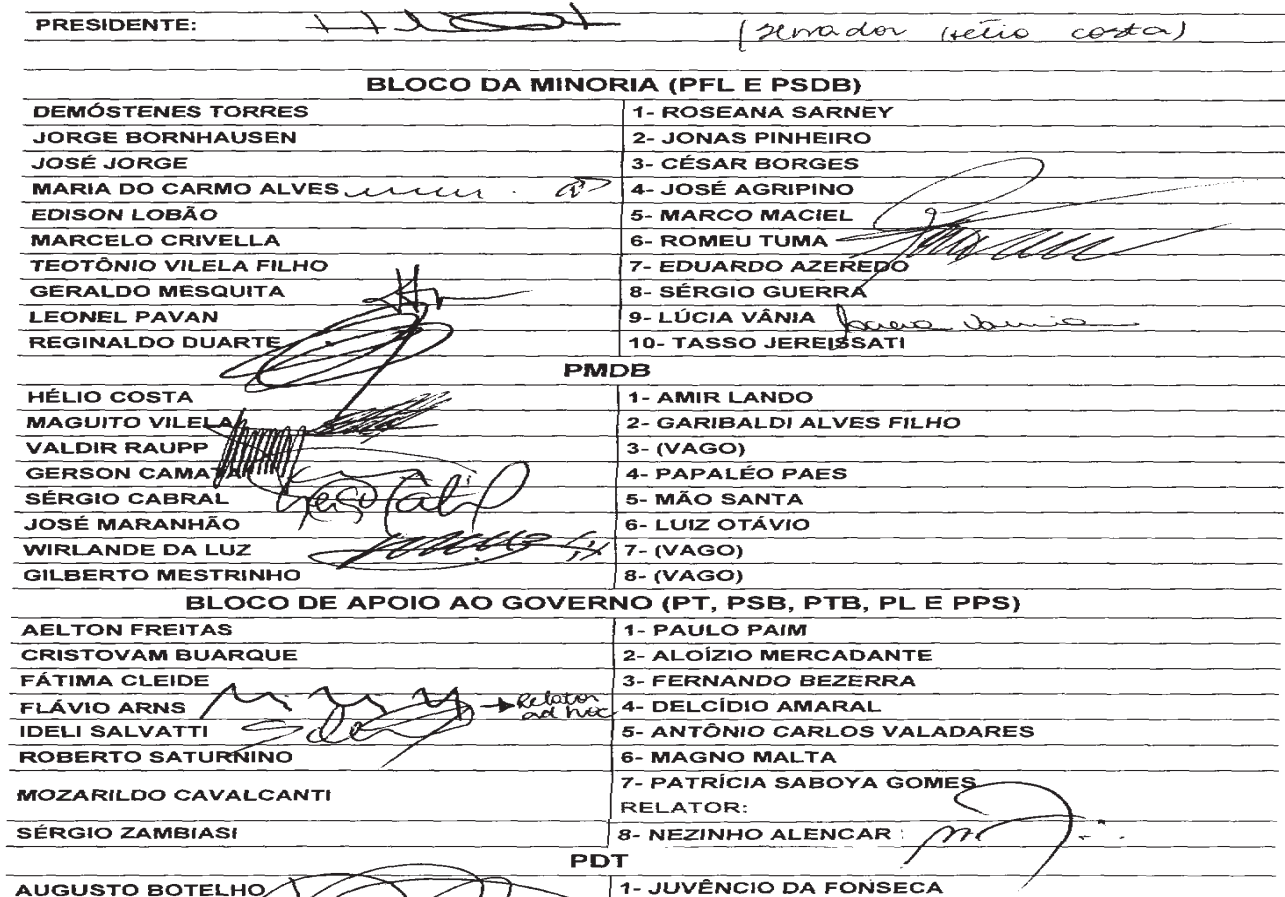 PRESIDENTE: (Senador Hélio Costa)
BLOCO DA MINORIA (PFL E PSDB)
DEMÓSTENES TORRES 1- ROSEANA SARNEY
JORGE BORNHAUSEN 2- JONAS PINHEIRO
JOSÉ JORGE 3- CÉSAR BORGES
MARIA DO CARMO ALVES 4- JOSÉ AGRIPINO
EDISON LOBÃO 5- MARCO MACIEL
MARCELO CRIVELLA 6- ROMEU TUMA
TEOTÔNIO VILELA FILHO 7- EDUARDO AZEREDO
GERALDO MESQUITA 8- SÉRGIO GUERRA
LEONEL PAVAN 9- LÚCIA VÂNIA Lúcia Vânia
REGINALDO DUARTE 10- TASSO JEREISSATI
PMDB
HÉLIO COSTA 1- AMIR LANDO
MAGUITO VILELA 2- GARIBALDI ALVES FILHO
VALDIR RAUPP 3- (VAGO)
GERSON CAMATA 4- PAPALÉO PAES
SÉRGIO CABRAL 5- MÃO SANTA
JOSÉ MARANHÃO 6- LUIZ OTÁVIO
WIRLANDE DA LUZ 7- (VAGO)
GILBERTO MESTRINHO 8- (VAGO)
BLOCO DE APOIO AO GOVERNO (PT, PSB, PTB, PL E PPS)
AELTON FREITAS 1- PAULO PAIM
CRISTOVAM BUARQUE 2- ALOÍZIO MERCADANTE
FÁTIMA CLEIDE 3- FERNANDO BEZERRA
FLÁVIO ARNS → Relator ad hoc 4- DELCÍDIO AMARAL
IDELI SALVATTI 5- ANTÔNIO CARLOS VALADARES
ROBERTO SATURNINO 6- MAGNO MALTA
MOZARILDO CAVALCANTI 7- PATRÍCIA SABOYA GOMES
RELATOR:
SÉRGIO ZAMBIASI 8- NEZINHO ALENCAR
PDT
AUGUSTO BOTELHO 1- JUVÊNCIO DA FONSECA